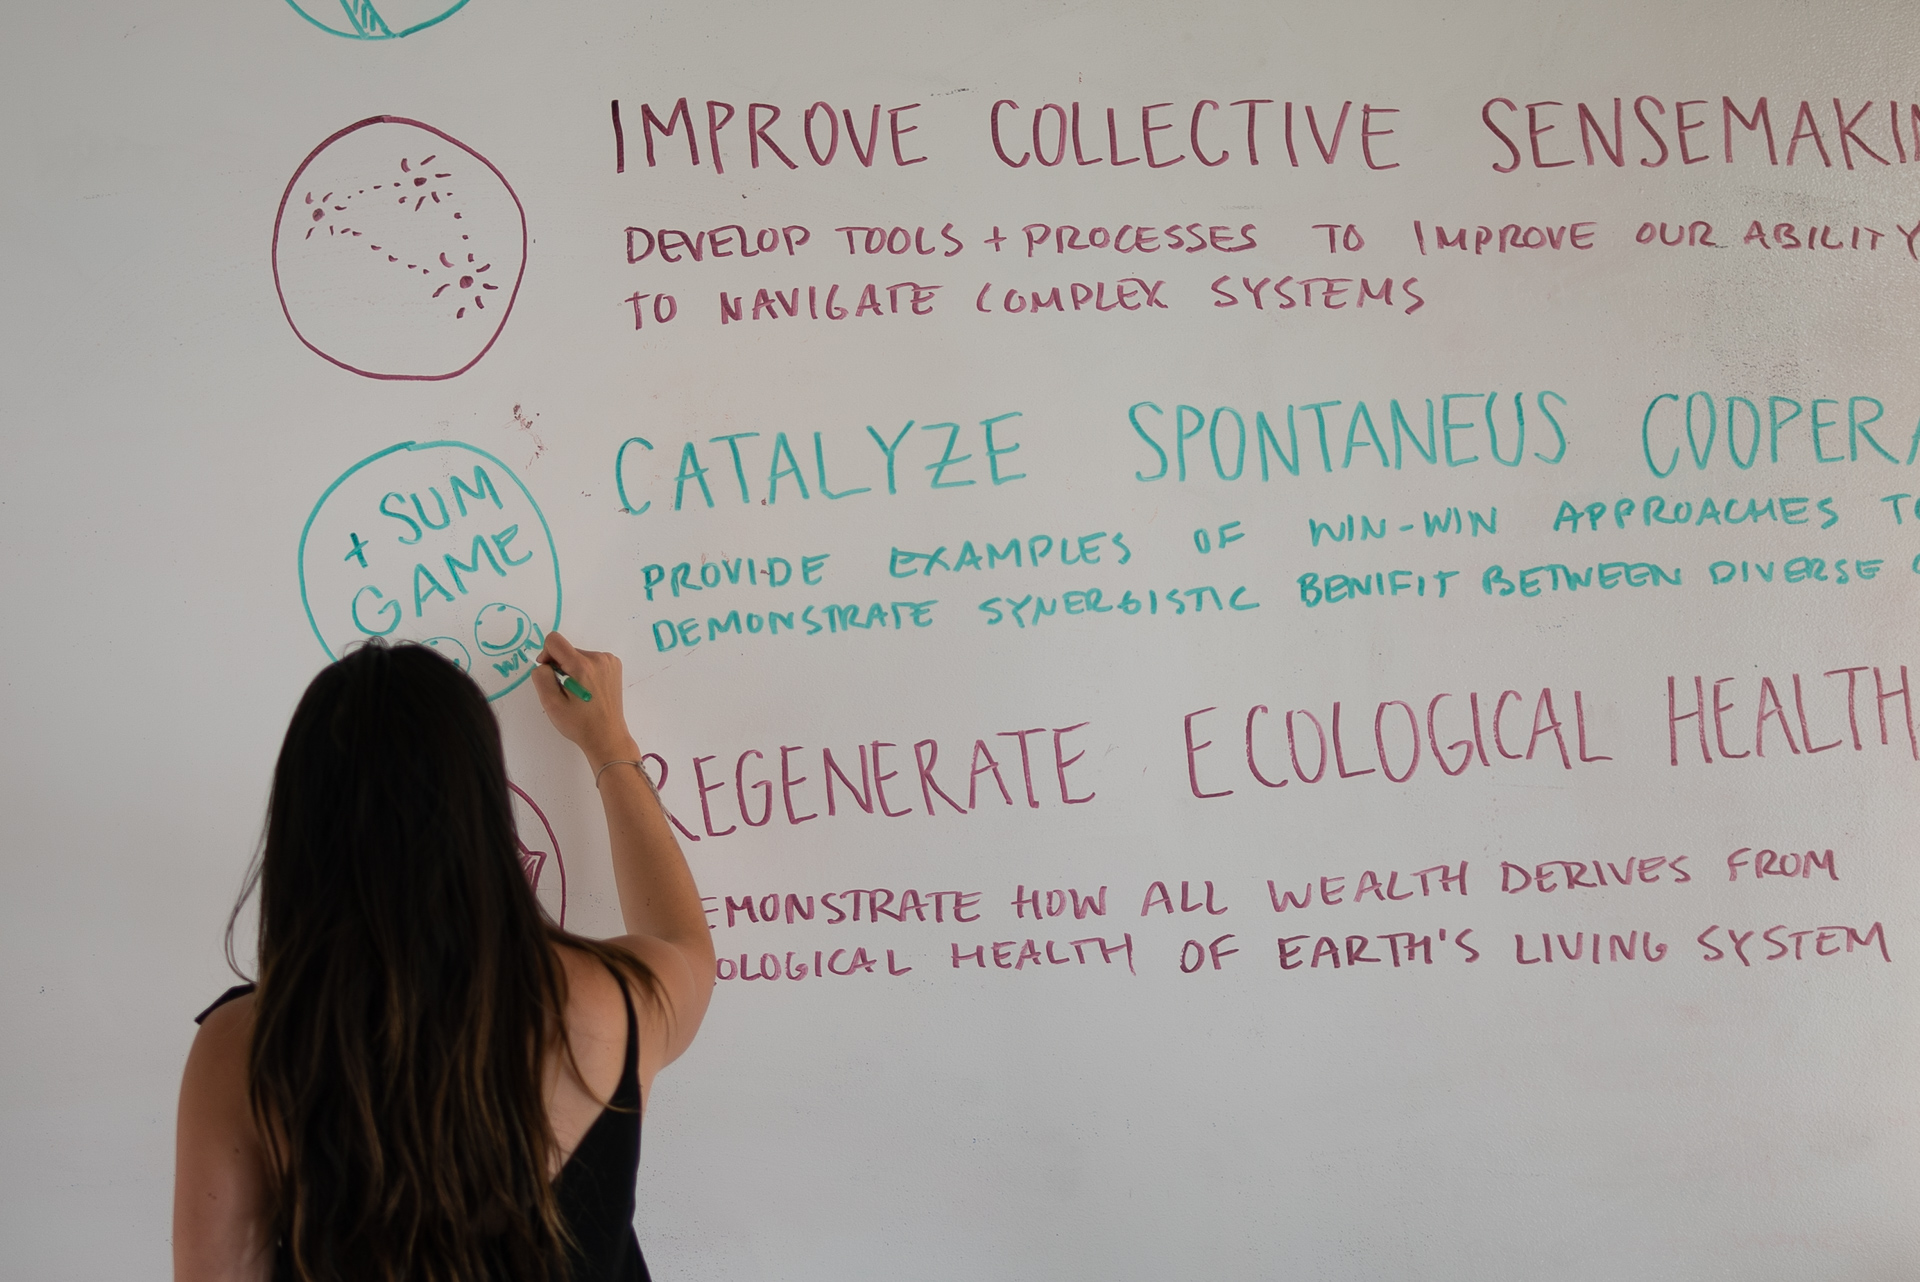 IMPROVE COLLECTIVE SENSEMAKIN
DEVELOP TOOLS + PROCESSES TO IMPROVE OUR ABILITY
TO NAVIGATE COMPLEX SYSTEMS
+ SUM
GAME
WIN
CATALYZE SPONTANEUS COOPERA
PROVIDE EXAMPLES OF WIN-WIN APPROACHES TO
DEMONSTRATE SYNERGISTIC BENIFIT BETWEEN DIVERSE
REGENERATE ECOLOGICAL HEALTH
EMONSTRATE HOW ALL WEALTH DERIVES FROM
OLOGICAL HEALTH OF EARTH'S LIVING SYSTEM